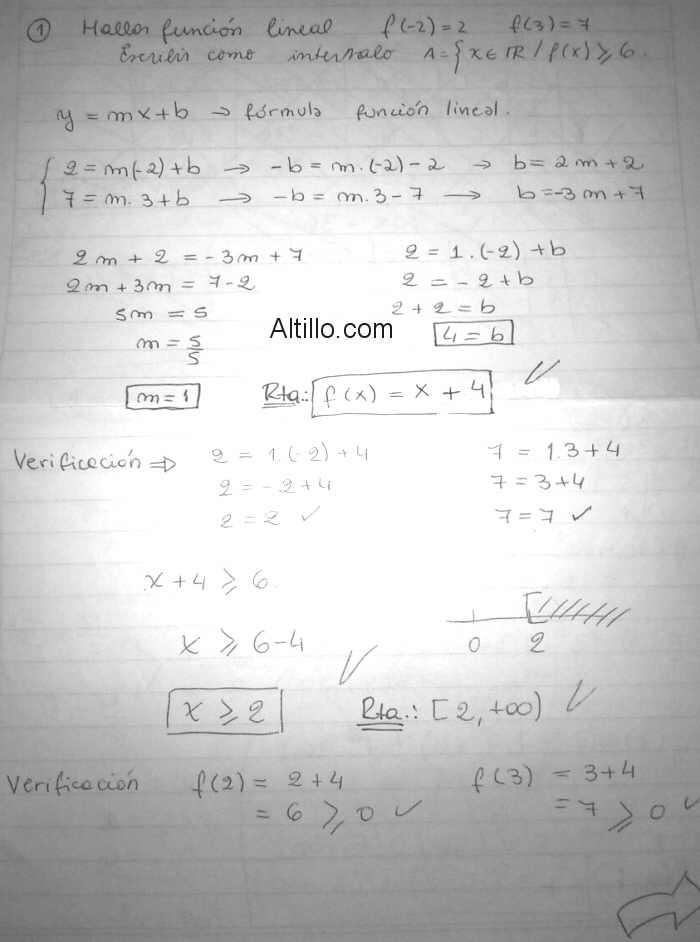 ① Hallar función lineal f(-2)=2 f(3)=7
Escribir como intervalo A={x∈ℝ/f(x)≥6.
y = mx+b → fórmula función lineal.
2=m(-2)+b → -b=m.(-2)-2 → b=2m+2
7=m.3+b → -b=m.3-7 → b=-3m+7
2m+2=-3m+7
2m+3m=7-2
5m=5
m=5/5
m=1
2=1.(-2)+b
2=-2+b
2+2=b
4=b
Altillo.com
Rta.: f(x)=x+4 ✓
Verificación ⇒ 2=1.(-2)+4 7=1.3+4
2=-2+4 7=3+4
2=2 ✓ 7=7 ✓
x+4≥6
x≥6-4
0 [2
x≥2 ✓ Rta.: [2,+∞) ✓
Verificación f(2)=2+4 f(3)=3+4
=6≥0 ✓ =7≥0 ✓